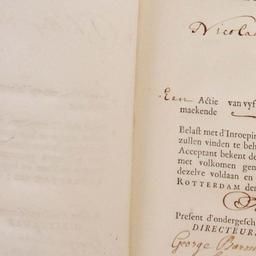 Nicola
Een Actie van vyf
maekende
Belast met d'Inroepin
zullen vinden te beh
Acceptant bekent de
met volkomen gen
dezelve voldaan en
ROTTERDAM den
Present d'ondergesch
DIRECTEUR
George